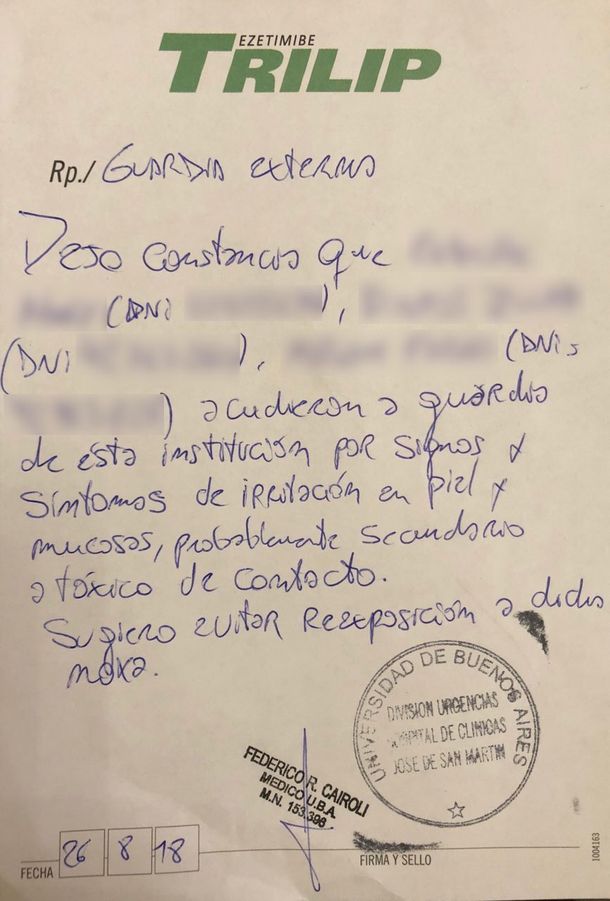 EZETIMIBE
TRILIP
Rp./ Guardia externa
Dejo constancia que
(DNI ),
(DNI ), (DNI:
) acudieron a guardia
de ésta institución por signos y
síntomas de irritación en piel y
mucosas, probablemente secundario
a tóxico de contacto.
Sugiero evitar reexposición a dicha
noxa.
UNIVERSIDAD DE BUENOS AIRES
DIVISION URGENCIAS
HOSPITAL DE CLINICAS
JOSE DE SAN MARTIN
FEDERICO R. CAIROLI
MEDICO U.B.A.
M.N. 153.396
FECHA 26 8 18
FIRMA Y SELLO
1004163